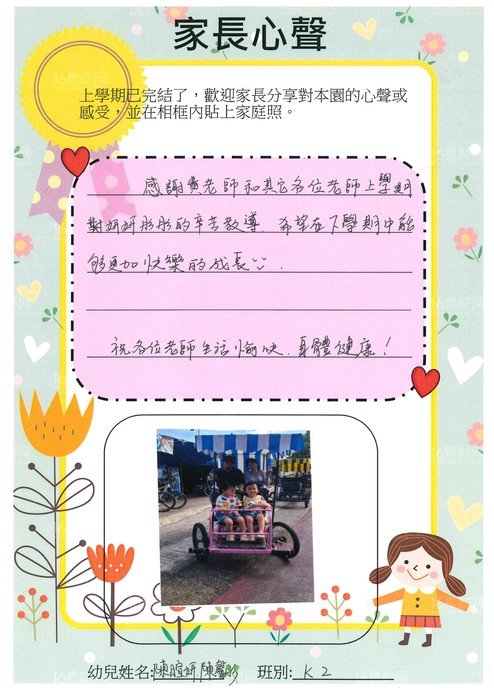 家長心聲
上學期已完結了，歡迎家長分享對本園的心聲或
感受，並在相框內貼上家庭照。
感謝黃老師和其它各位老師上學期
對妍妍彤彤的辛苦教導 希望在下學期中能
夠更加快樂的成長
祝各位老師生活愉快.身體健康!
幼兒姓名:陳 妍 陳 班別: K2